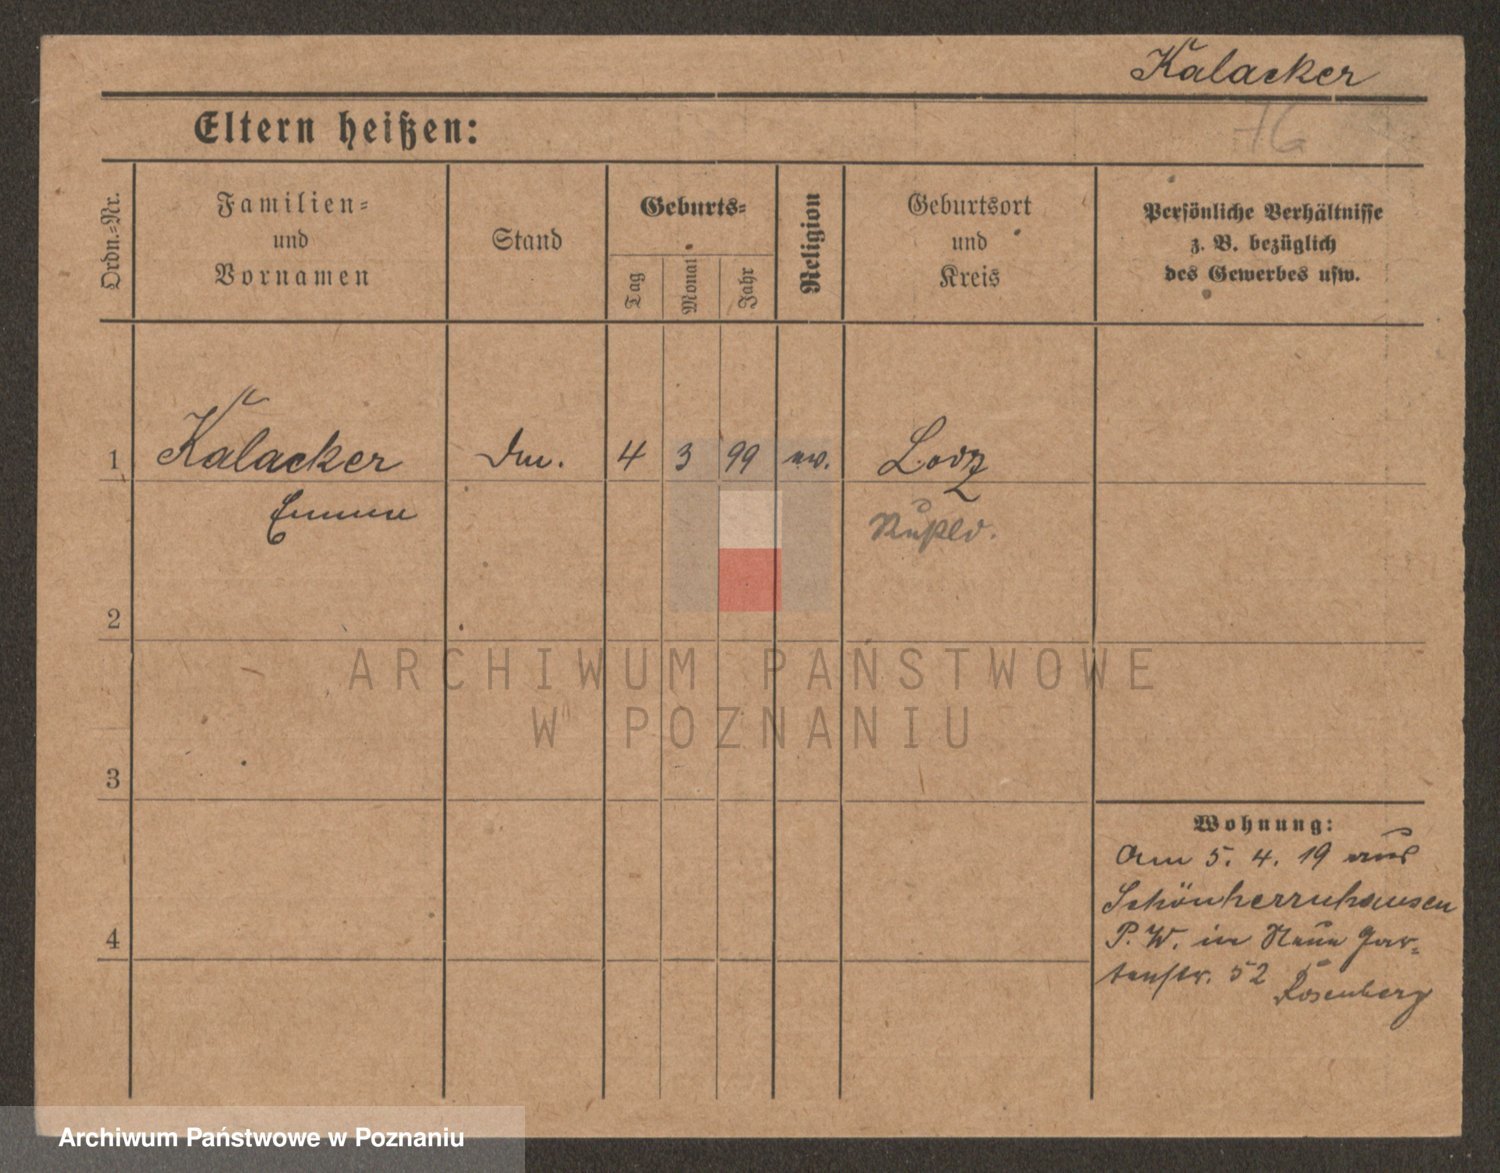 Kalacker
76
Eltern heißen:
Ordn.-Nr.
Familien-
und
Vornamen
Stand
Geburts-
Tag
Monat
Jahr
Religion
Geburtsort
und
Kreis
Persönliche Verhältnisse
z. B. bezüglich
des Gewerbes usw.
1 Kalacker 4 3 99 ev. Lodz
Emma Rußld.
2
3
4
ARCHIWUM PAŃSTWOWE
W POZNANIU
Wohnung:
Am 5. 4. 19 aus
Schönherrnhausen
P. W. in Neue Gar-
tenstr. 52 Rosenberg
Archiwum Państwowe w Poznaniu